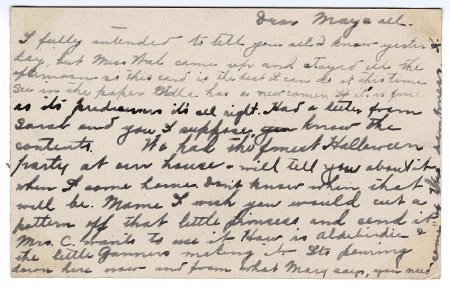 Dear May & all.
I fully intended to tell you all I know yester
day, but Miss came up and stayed all the
afternoon so this card is the best I can do at this time
See in the paper Stella has a newcomer. If it's as fine
as its predecessors it's all right. Had a letter from
Sarah and you, I suppose, know the
contents. We had the finest Halloween
party at our house - will tell you about it
when I come home. Don't know when that
will be. Mame I wish you would cut a
pattern off that little princess and send it
Mrs. C. wants to use it How is &
the little making it. Its pouring
down here now and from what Mary says, you need